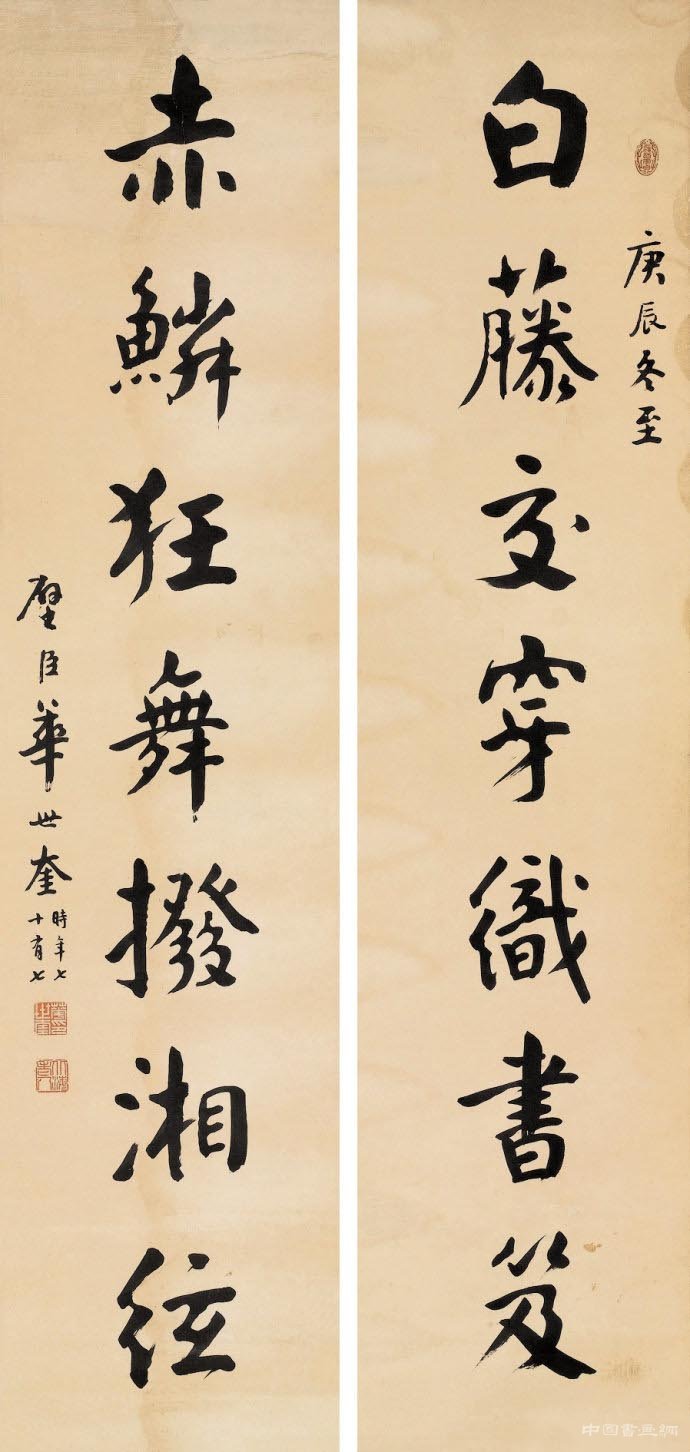 庚辰冬至
白藤交穿織書笈
赤鱗狂舞撥湘絃
璧臣華世奎
時年七
十有七
中国書画網